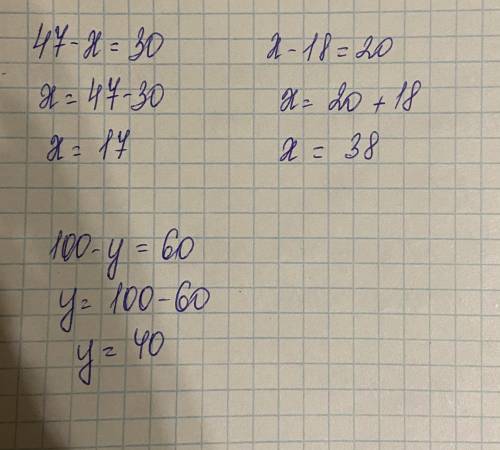 47 - x = 30
x = 47 - 30
x = 17
x - 18 = 20
x = 20 + 18
x = 38
100 - y = 60
y = 100 - 60
y = 40